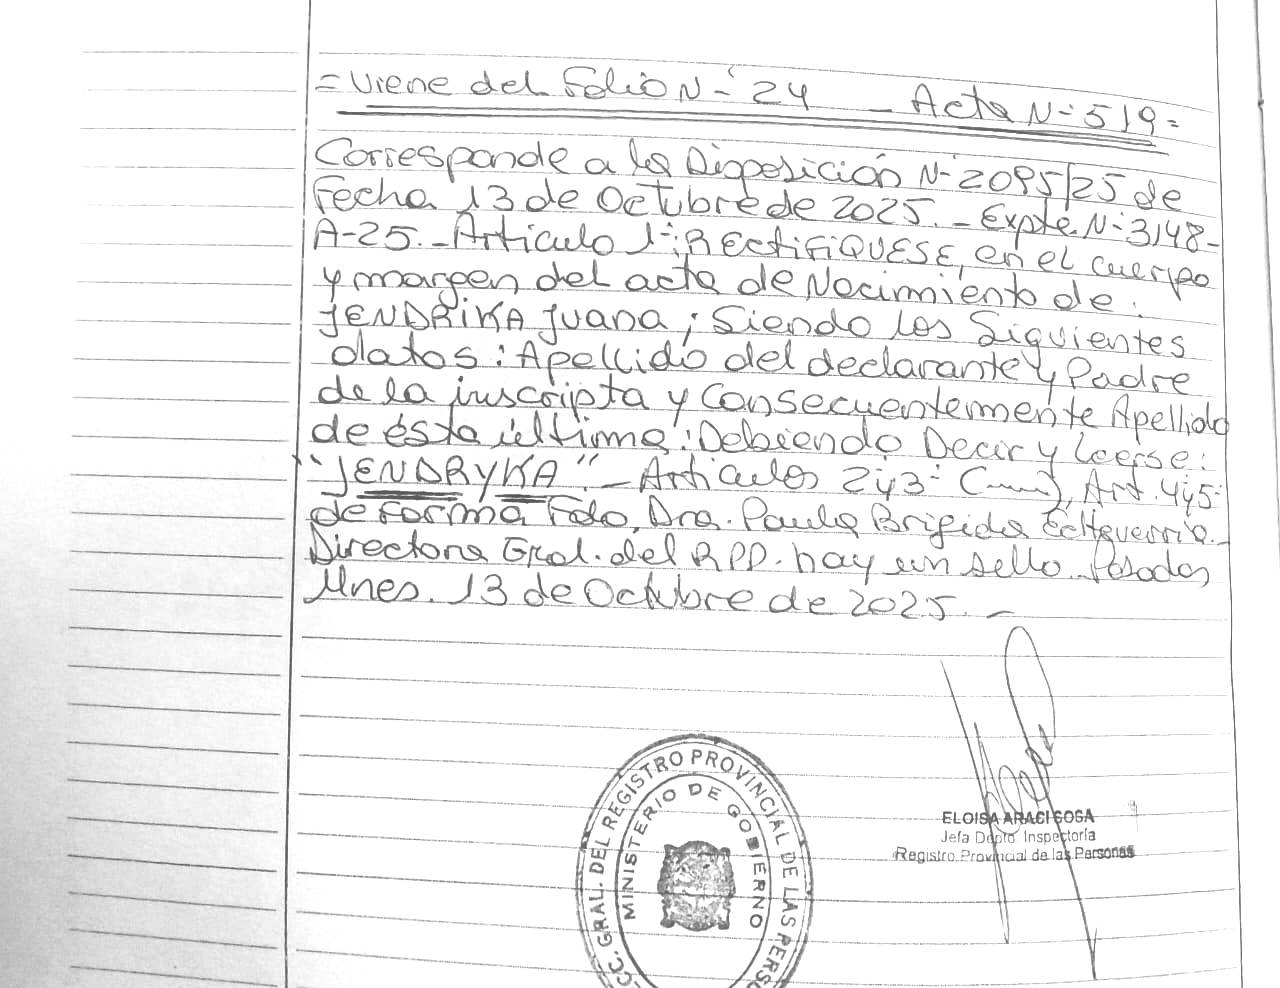 = Viene del Folio N-° 24 _ Acta N-° 519 =
Corresponde a la Disposición N-° 2095/25 de
Fecha 13 de Octubre de 2025._ Expte. N-° 3148-
A-25._ Articulo 1-°: RECtiFiQUESE, en el cuerpo
y margen del acta de Nacimiento de:
JENDRIKA Juana; Siendo los Siguientes
datos: Apellido del declarante y Padre
de la inscripta y Consecuentemente Apellido
de ésta última: Debiendo Decir y Leerse:
"JENDRYKA"._ Articulos 2 y 3-° (......), Art. 4 y 5-°
de Forma Fdo, Dra. Paula Brigida Echeverria._
Directora Gral. del RPP. hay un sello. Posadas
Mnes. 13 de Octubre de 2025._
CC. GRAL. DEL REGISTRO PROVINCIAL DE LAS PERSO
MINISTERIO DE GOBIERNO
ELOISA ARACI SOSA
Jefa Dpto Inspectoría
Registro Provincial de las Personas